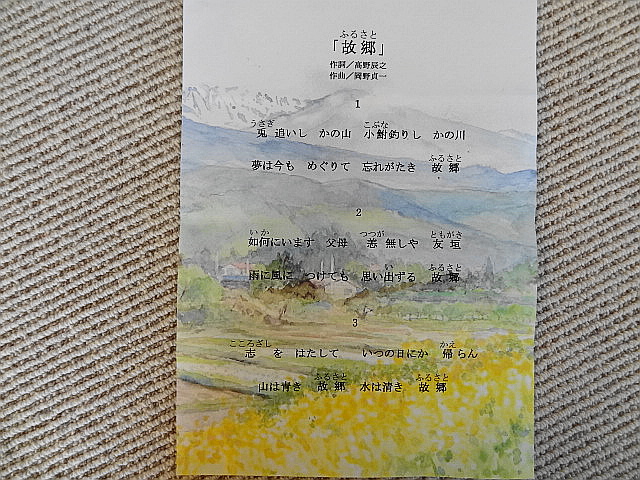 ふるさと
「故郷」
作詞／高野辰之
作曲／岡野貞一
1
うさぎ　こぶな
兎 追いし　かの山　小鮒釣りし　かの川
ふるさと
夢は今も　めぐりて　忘れがたき　故郷
2
いか　つつが　ともがき
如何にいます　父母　恙 無しや　友垣
い　ふるさと
雨に風に　つけても　思い出ずる　故郷
3
こころざし　かえ
志　を　はたして　いつの日にか　帰らん
ふるさと　ふるさと
山は青き　故郷　水は清き　故郷